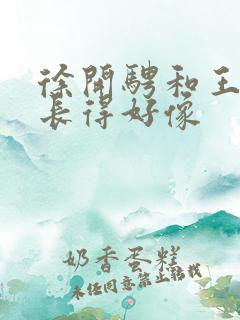 徐开骋和王
长得好像
奶香蛋糕
未经同意禁止转载